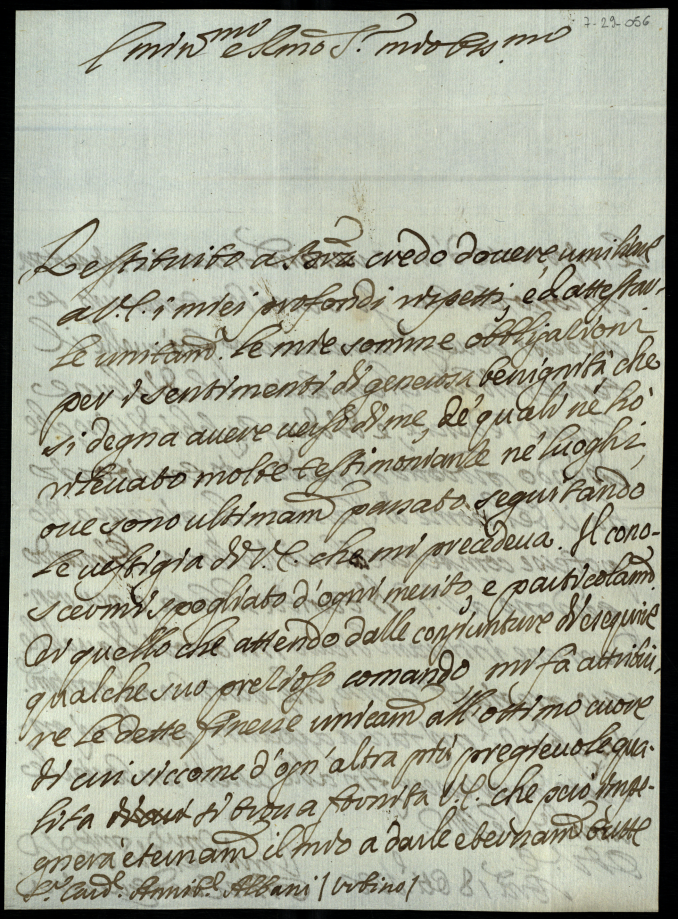 7-29-056
Emin.mo e R.mo S.r mio Oss.mo
Restituito a credo dovere umiliare
a V.E. i miei profondi rispetti, ed attestar-
le unitam. le mie somme obbligazioni
per i sentimenti di generosa benignità che
si degna avere verso di me, de' quali né hò
rilevato molte testimonianze né luoghi,
ove sono ultimam. passato seguitando
le vestigia di V.E. che mi precedeva. Il cono-
scermi spogliato d'ogni merito, e particolarm.
di quello che attendo dalle congiunture di eseguire
qualche suo prezioso comando mi fà attribui-
re le dette finezze unicam. all'ottimo cuore
di cui siccome d'ogn'altra più pregievole qua-
lita si trova fornita V.E. che però impe-
gnerà eternam. il mio a darle eternam. tutte
S.r Card. Annib. Albani (Urbino)